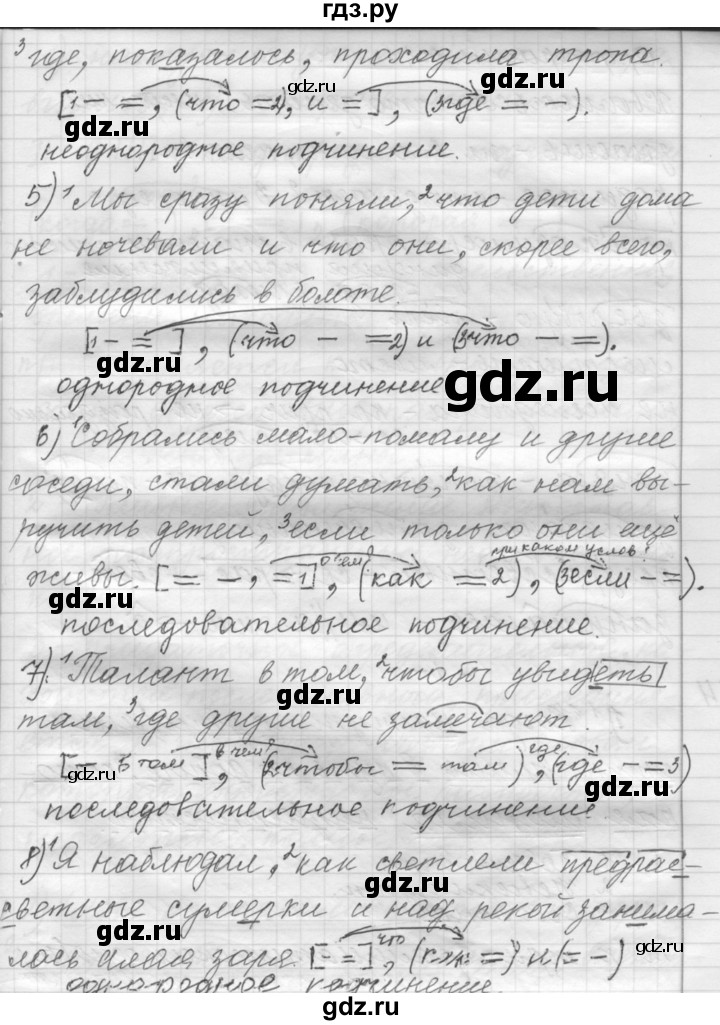 гдз.ру
³где, показалось, проходила тропа.
[1 – =, (что = 2), и = ], (3где = –).
gdz.ru
gdz.ru
gdz.ru
gdz.ru
неоднородное подчинение.
5) ¹Мы сразу поняли, ²что дети дома
не ночевали и что они, скорее всего,
заблудились в болоте.
[1 – = ], (что – = 2) и (3что – =).
gdz.ru
gdz.ru
однородное подчинение
gdz.ru
6) ¹Собрались мало-помалу и другие
соседи, стали думать, ²как нам вы-
ручить детей, ³если только они ещё
при каком услов?
живы. [= –, =1], о чём? (как = 2), (3если – =).
gdz.ru
gdz.ru
последовательное подчинение.
7) ¹Талант в том, ²чтобы увидеть
там, ³где другие не замечают.
gdz.ru
[– в том ], в чём? (2чтобы = там), где (где – = 3)
gdz.ru
gdz.ru
gdz.ru
последовательное подчинение.
8) ¹Я наблюдал, ²как светлели предрас-
gdz.ru
светные сумерки и над рекой занима-
лась алая заря. [– =], что (как =) и (= –)
gdz.ru
gdz.ru
однородное подчинение.
gdz.ru